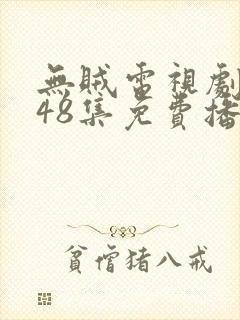 無賊電視劇
48集免費播
貧僧豬八戒